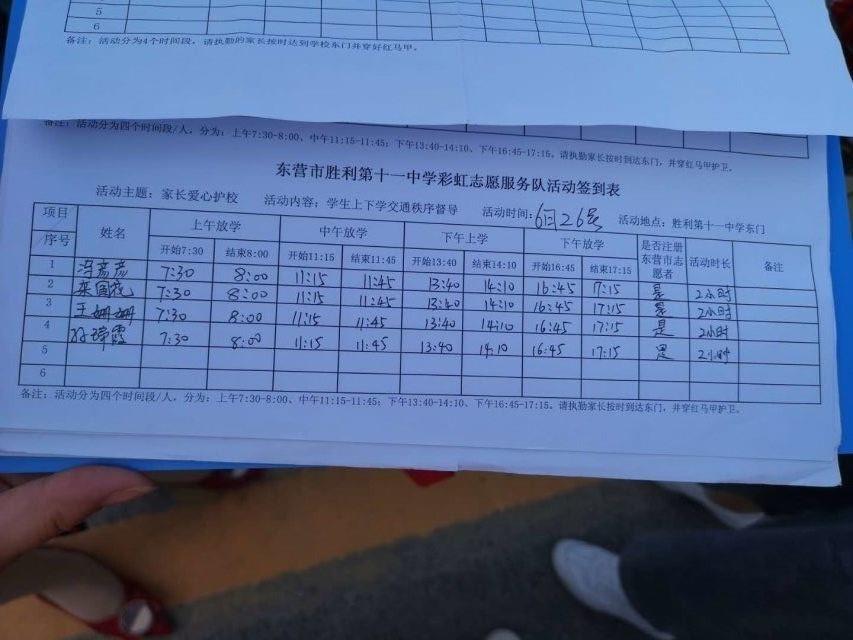 5
6
备注：活动分为4个时间段，请执勤的家长按时达到学校东门并穿好红马甲。
备注：活动分为四个时间段/人，分为：上午7:30-8:00、中午11:15-11:45；下午13:40-14:10、下午16:45-17:15。请执勤家长按时到达东门，并穿红马甲护卫。
东营市胜利第十一中学彩虹志愿服务队活动签到表
活动主题：家长爱心护校 活动内容：学生上下学交通秩序督导 活动时间：6月26号 活动地点：胜利第十一中学东门
项目 序号 姓名 上午放学 中午放学 下午上学 下午放学 是否注册东营市志愿者 活动时长 备注
开始7:30 结束8:00 开始11:15 结束11:45 开始13:40 结束14:10 开始16:45 结束17:15
1 冯彦彦 7:30 8:00 11:15 11:45 13:40 14:10 16:45 17:15 是 2小时
2 7:30 8:00 11:15 11:45 13:40 14:10 16:45 17:15 是 2小时
3 王姗姗 7:30 8:00 11:15 11:45 13:40 14:10 16:45 17:15 是 2小时
4 7:30 8:00 11:15 11:45 13:40 14:10 16:45 17:15 是 2小时
5
6
备注：活动分为四个时间段/人，分为：上午7:30-8:00、中午11:15-11:45；下午13:40-14:10、下午16:45-17:15。请执勤家长按时到达东门，并穿红马甲护卫。